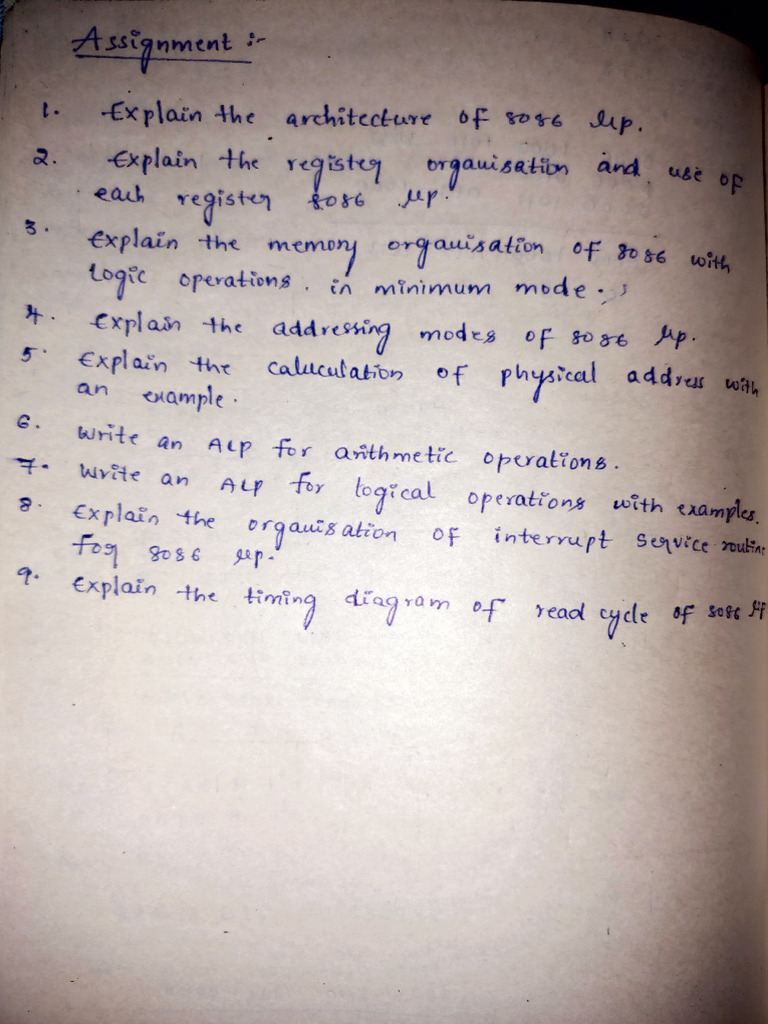 Assignment :-
1. Explain the architecture of 8086 μp.
2. Explain the register organisation and use of
each register 8086 μp.
3. Explain the memory organisation of 8086 with
logic operations. in minimum mode.
4. Explain the addressing modes of 8086 μp.
5. Explain the caluculation of physical address with
an example.
6. Write an ALP for arithmetic operations.
7. Write an ALP for logical operations with examples.
8. Explain the organisation of interrupt service routine
for 8086 μp.
9. Explain the timing diagram of read cycle of 8086 μp